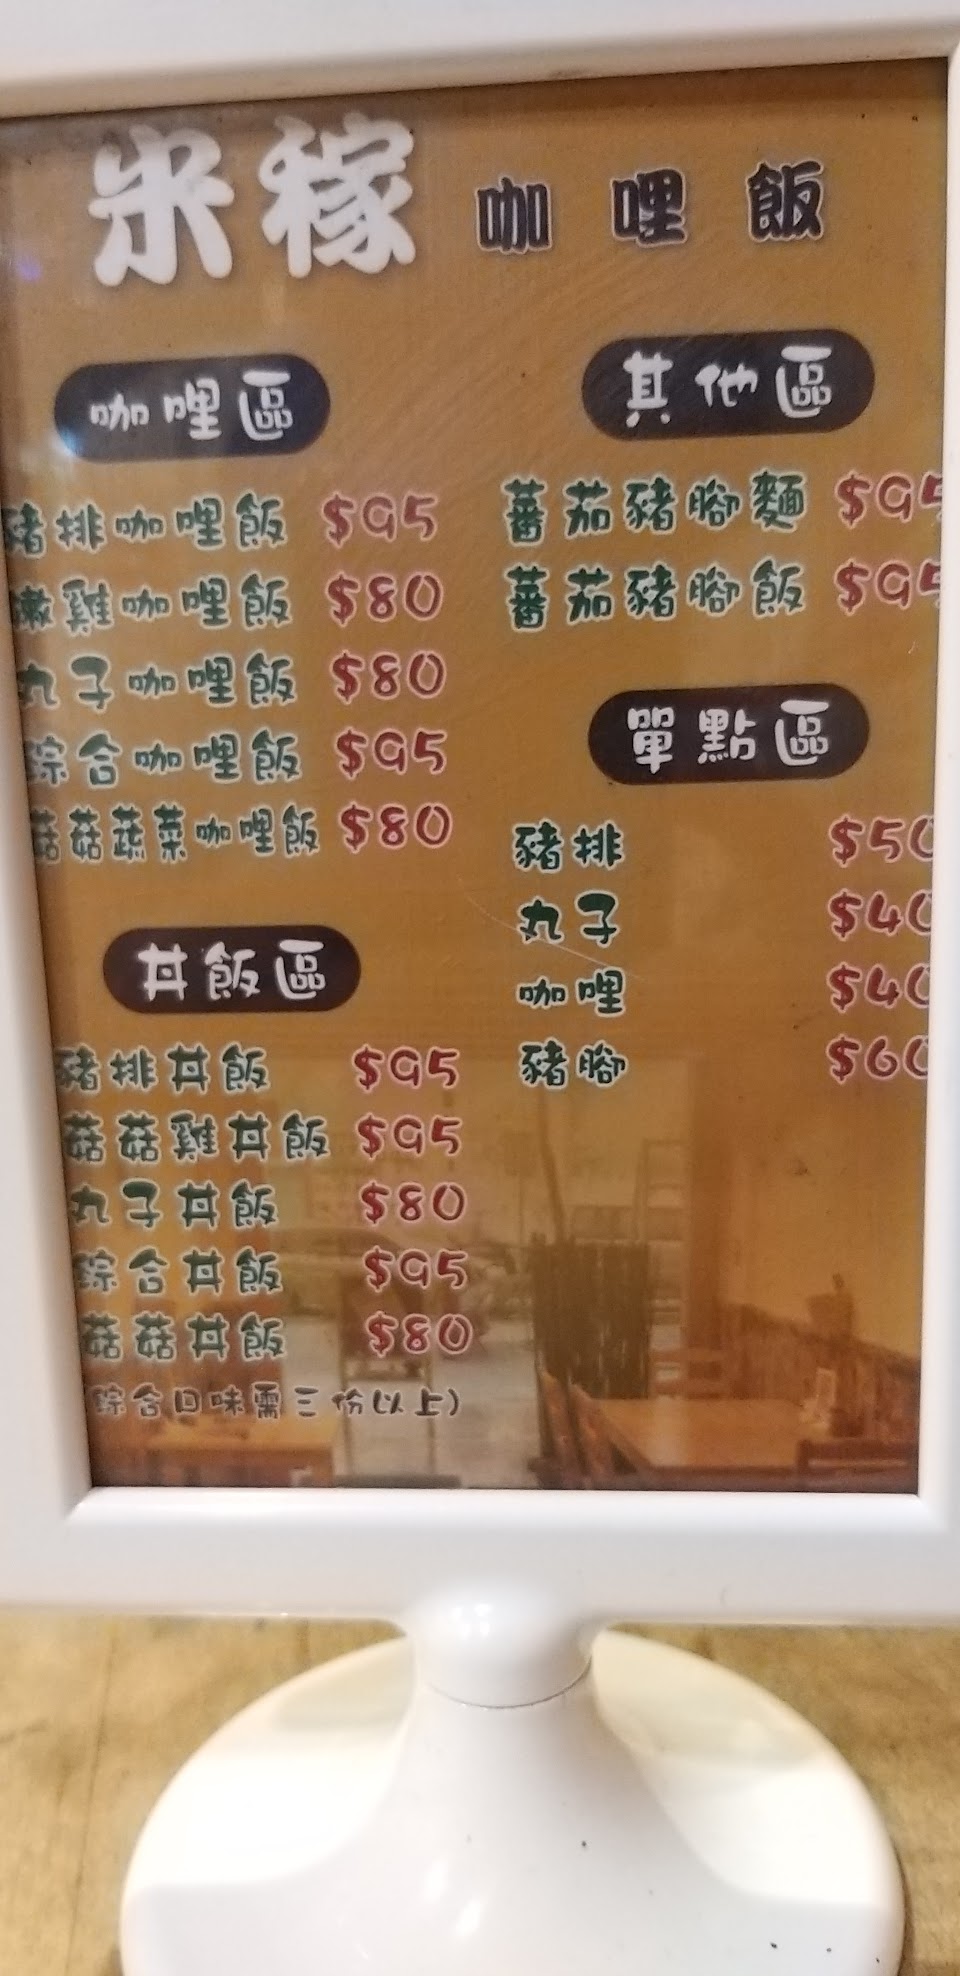 米稼 咖哩飯
咖哩區
豬排咖哩飯 $95
嫩雞咖哩飯 $80
丸子咖哩飯 $80
綜合咖哩飯 $95
菇菇蔬菜咖哩飯 $80
丼飯區
豬排丼飯 $95
菇菇雞丼飯 $95
丸子丼飯 $80
綜合丼飯 $95
菇菇丼飯 $80
(綜合口味需三份以上)
其他區
蕃茄豬腳麵 $95
蕃茄豬腳飯 $95
單點區
豬排 $50
丸子 $40
咖哩 $40
豬腳 $60